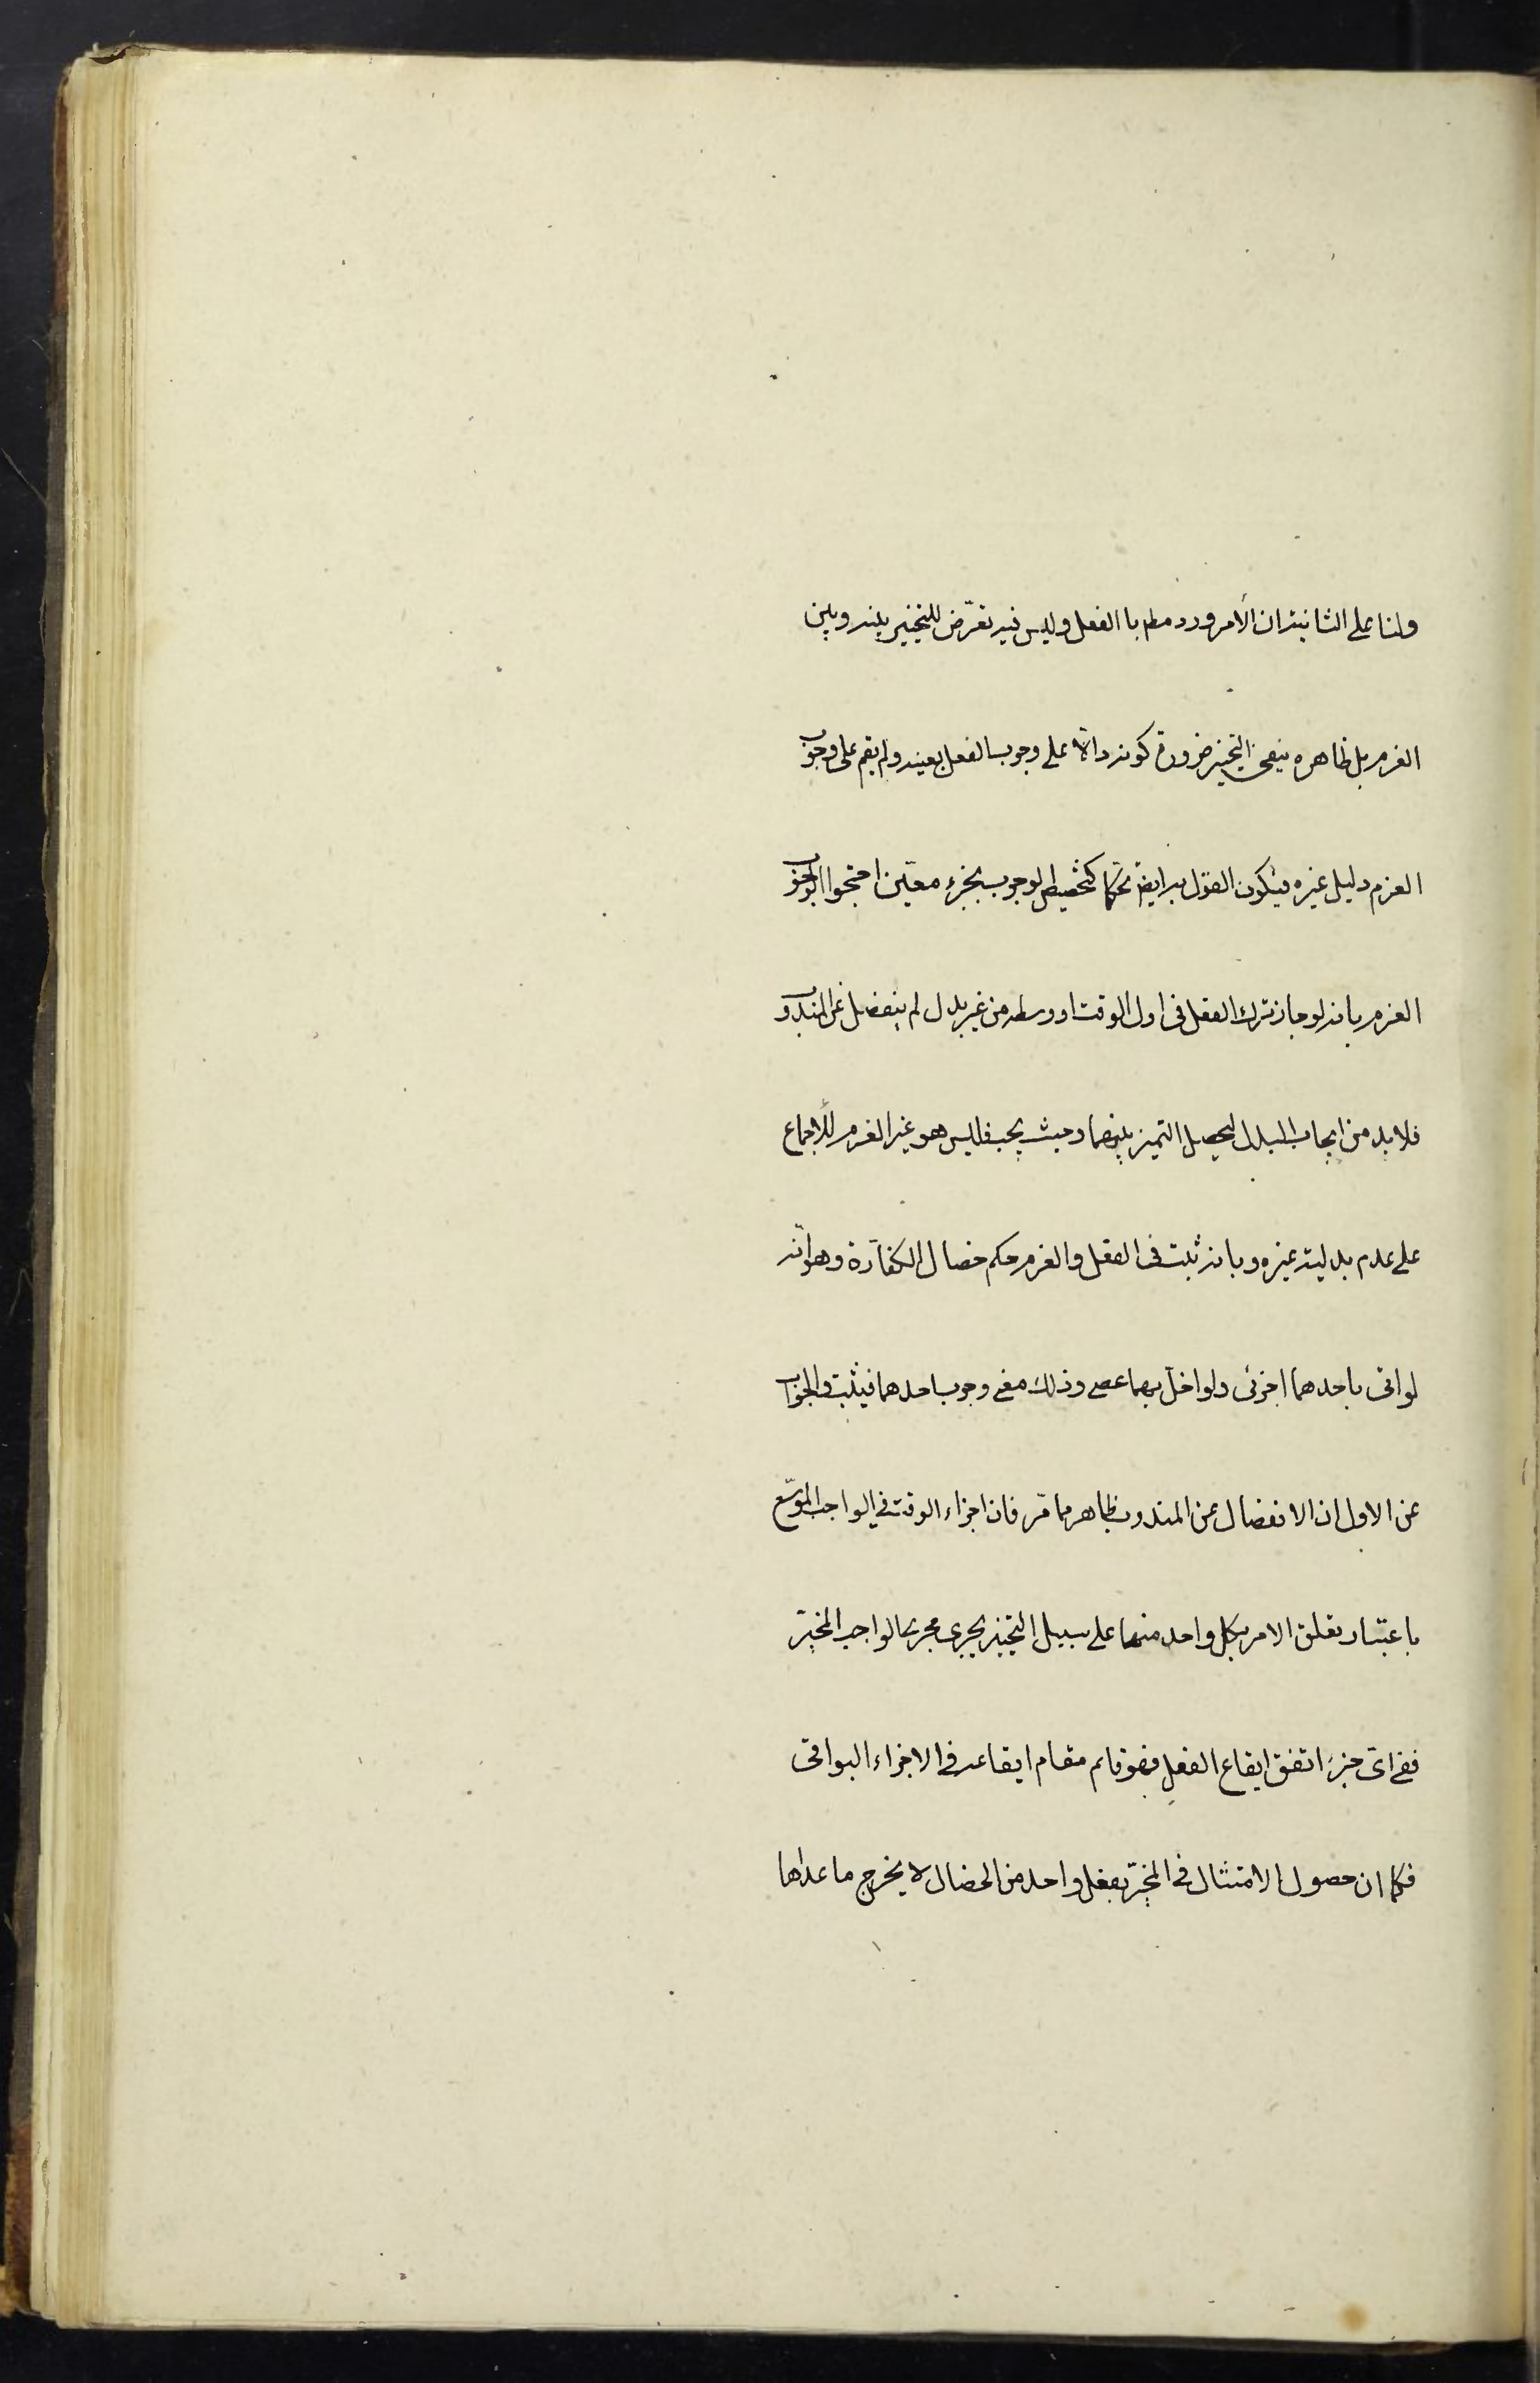 ولنا على الثانية ان الأمر ورد مطم با الفعل وليس فيه تعرّض للتخيير بينه وبين
العزم بل ظاهره ينفى التخيير ضرورة كونه دالّا على وجوب الفعل بعينه ولم يقم على وجوب
العزم دليل غيره فيكون القول به ايضً تحكما كتخصيص الوجوب بجزء معيّن احتجوا لوجوب
العزم بانه لو جاز ترك الفعل فى اول الوقت او وسطه من غير بدل لم ينفصل عن المندوب
فلا بد من ايجاب البدل ليحصل التميز بينهما وحيث يجب فليس هو غير العزم للأجماع
على عدم بدلية غيره وبانه ثبت فى الفعل والعزم حكم خصال الكفّارة وهو انّه
لو اتى باحدهما اجزئى ولو اخلّ بهما عصى وذلك معنى وجوب احدهما فيثبت والجواب
عن الاول ان الانفصال عن المندوب ظاهر مما مرّ فان اجزاء الوقت فى الواجب الموسّع
باعتبار تعلق الامر بكل واحد منها على سبيل التخيير يجرى مجرى الواجب المخيّر
ففى اىّ جزء اتفق ايقاع الفعل فهو قائم مقام ايقاعه فى الاجزاء البواقى
فكما ان حصول الامتثال فى المخيّر بفعل واحد من الخصال لا يخرج ما عداها